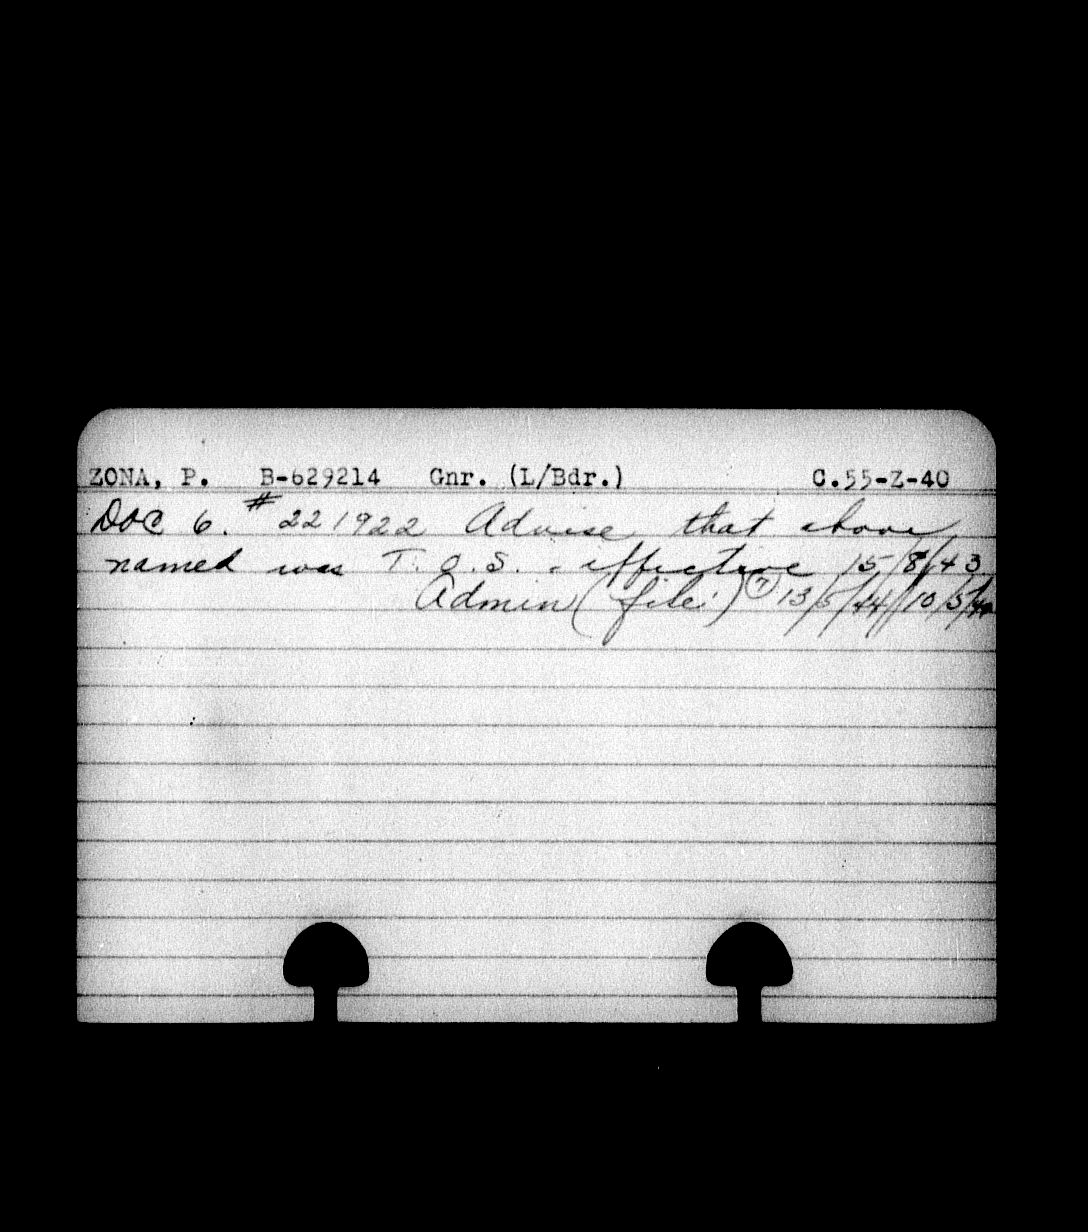 ZONA, P. B-629214 Gnr. (L/Bdr.) C.55-Z-40
DOC 6. # 221922 Advise that above
named was T.O.S. - effective 15/8/43
Admin (file) (7) 13/5/44//10/5/44